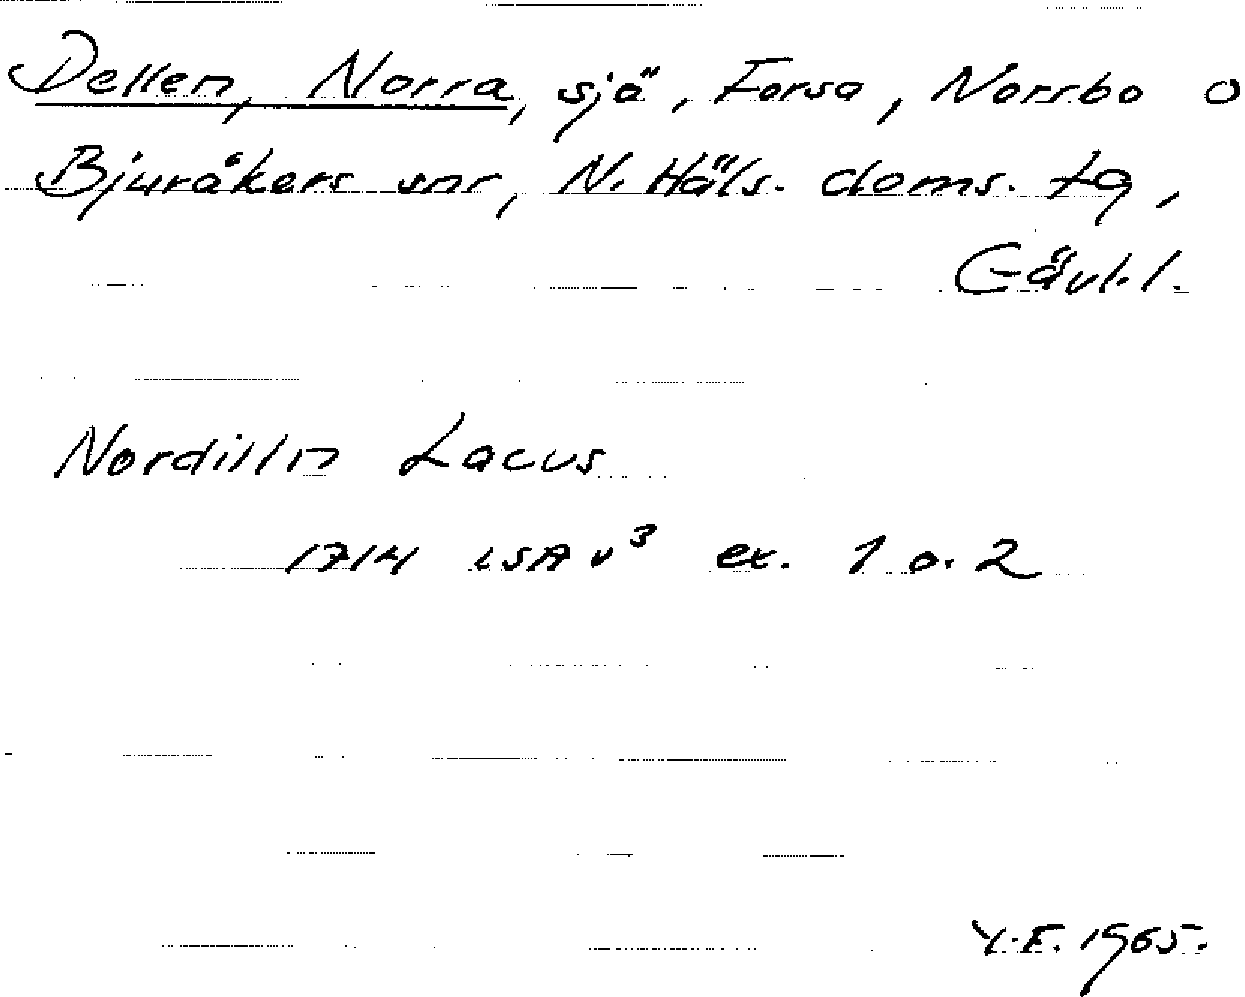 Dellen, Norra, sjö, Forsa, Norrbo o
Bjuråkers snr, N. Häls. doms. tg,
Gävl. l.
Nordillin Lacus
1714 LSA v³ ex. 1 o. 2
Y.E. 1965.